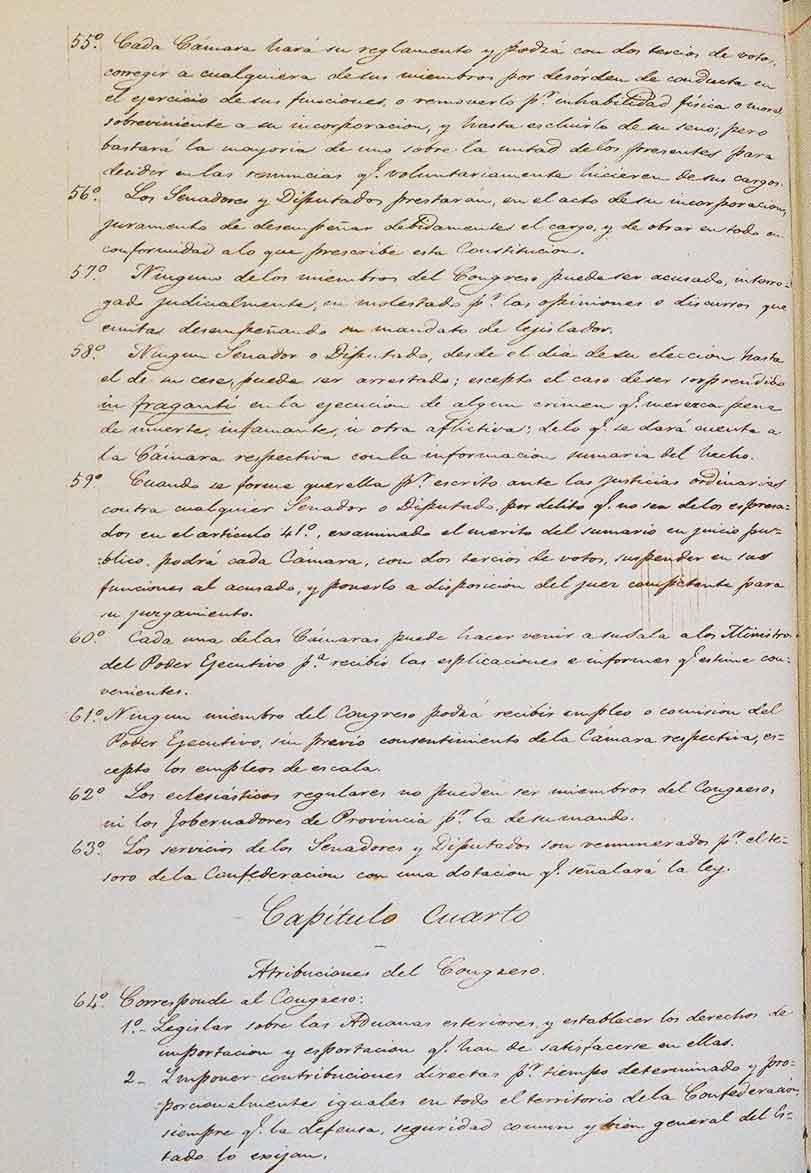 55º. Cada Cámara hará su reglamento y podrá con dos tercios de voto,
corregir a cualquiera de sus miembros por desórden de conducta en
el ejercicio de sus funciones, o removerlo pr. inhabilidad física o moral
sobreviniente a su incorporacion, y hasta escluirlo de su seno; pero
bastará la mayoria de uno sobre la mitad de los presentes para
decidir en las renuncias q. voluntariamente hicieren de sus cargos.
56º. Los Senadores y Diputados prestarán, en el acto de su incorporacion,
juramento de desempeñar debidamente el cargo, y de obrar en todo en
conformidad a lo que prescribe esta Constitucion.
57º. Ninguno de los miembros del Congreso puede ser acusado, interro-
gado judicialmente, ni molestado pr. las opiniones o discursos que
emita desempeñando su mandato de legislador.
58º. Ningun Senador o Diputado, desde el dia de su eleccion hasta
el de su cese, puede ser arrestado; escepto el caso de ser sorprendido
in fraganti en la ejecucion de algun crimen q. merezca pena
de muerte, infamante, u otra aflictiva; de lo q. se dará cuenta a
la Cámara respectiva con la informacion sumaria del hecho.
59º Cuando se forme querella pr. escrito ante las justicias ordinarias
contra cualquier Senador o Diputado, por delito q. no sea de los espresa-
dos en el artículo 41º., examinado el merito del sumario en juicio pú-
blico, podrá cada Cámara, con dos tercios de votos, suspender en sus
funciones al acusado, y ponerlo a disposicion del juez competente para
su juzgamiento.
60º. Cada una de las Cámaras puede hacer venir a su sala a los Ministros
del Poder Ejecutivo pa. recibir las esplicaciones e informes q. estime con-
venientes.
61º. Ningun miembro del Congreso podrá recibir empleo o comision del
Poder Ejecutivo, sin previo consentimiento de la Cámara respectiva, es-
cepto los empleos de escala.
62º Los eclesiásticos regulares no pueden ser miembros del Congreso,
ni los Gobernadores de Provincia pr. la de su mando.
63º. Los servicios de los Senadores y Diputados son remunerados pr. el te-
soro de la Confederacion con una dotacion q. señalará la ley.
Capítulo Cuarto
Atribuciones del Congreso.
64º. Corresponde al Congreso:
1º.- Legislar sobre las Aduanas esteriores, y establecer los derechos de
importacion y esportacion q. han de satisfacerse en ellas.
2- Imponer contribuciones directas pr. tiempo determinado y pro-
porcionalmente iguales en todo el territorio de la Confederacion,
siempre q. la defensa, seguridad comun y bien general del Es-
tado lo exijan.